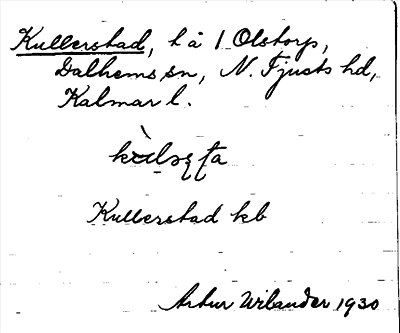 Kullerstad, t å 1 Olstorp,
Dalhems sn, N. Tjusts hd,
Kalmar l.
Kullerstad kb
Artur Wilander 1930